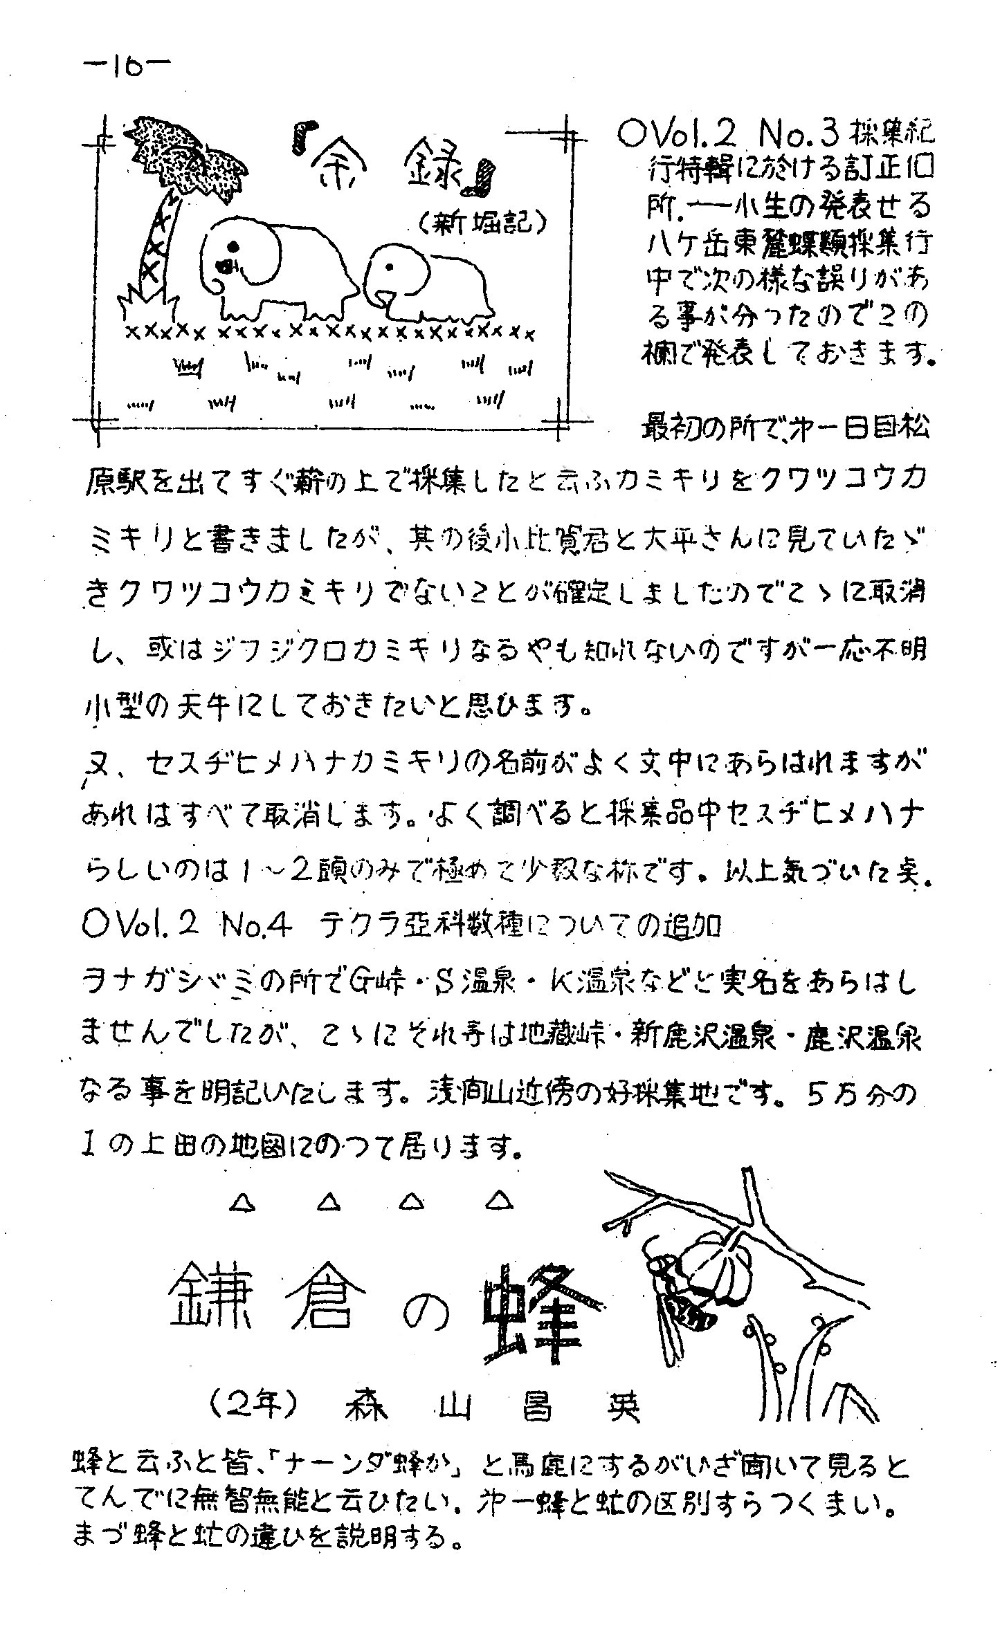 －16－
『余録』
（新堀記）
○Vol.2 No.3 採集紀
行特輯に於ける訂正個
所．――小生の発表せる
八ケ岳東麓蝶類採集行
中で次の様な誤りがあ
る事が分ったのでこの
欄で発表しておきます。
最初の所で、才一日目松
原駅を出てすぐ薪の上で採集したと云ふカミキリをクワツコウカ
ミキリと書きましたが、其の後小比賀君と大平さんに見ていたゞ
きクワツコウカミキリでないことが確定しましたのでこゝに取消
し、或はジフジクロカミキリなるやも知れないのですが一応不明
小型の天牛にしておきたいと思ひます。
又、セスヂヒメハナカミキリの名前がよく文中にあらはれますが
あれはすべて取消します。よく調べると採集品中セスヂヒメハナ
らしいのは1～2頭のみで極めて少数な様です。以上気づいた点．
○Vol.2 No.4 テクラ亜科数種についての追加
ヲナガシジミの所でG峠・S温泉・K温泉などと実名をあらはし
ませんでしたが、こゝにそれ等は地蔵峠・新鹿沢温泉・鹿沢温泉
なる事を明記いたします。浅間山近傍の好採集地です。5万分の
1の上田の地図にのつて居ります。
△ △ △ △
鎌倉の蜂
（2年） 森山昌英
蜂と云ふと皆、「ナーンダ蜂か」と馬鹿にするがいざ聞いて見ると
てんでに無智無能と云ひたい．才一蜂と虻の区別すらつくまい。
まづ蜂と虻の違ひを説明する。